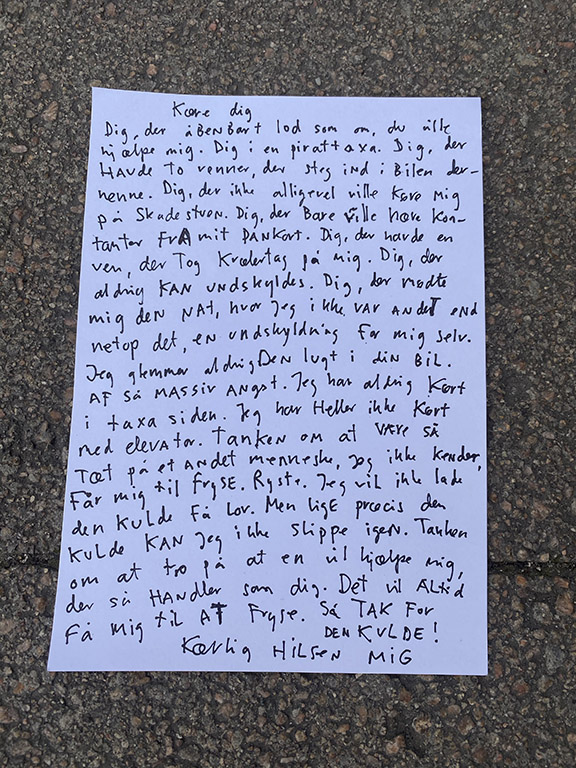 Kære dig
Dig, der åBENBArt lod som om, du ville
hjælpe mig. Dig i en pirattaxa. Dig, der
HAvde To venner, der steg ind i Bilen der-
henne. Dig, der ikke alligevel ville Køre mig
på SkadestueN. Dig, der Bare ville hæve Kon-
tanter FrA mit DANKort. Dig, der havde en
ven, der Tog Kvælertag på mig. Dig, der
aldrig KAN UNDskyldes. Dig, der mødte
mig deN NAt, hvor Jeg ikke VAr ANdeT eNd
netop det, eN undskyldning for mig selv.
Jeg glemmer aldrig DEN lugt i diN BiL.
AF Så MASSiv ANgst. Jeg har aldrig Kørt
i taxa siden. Jeg har Heller ikke Kørt
med elevator. TANKeN om at VÆRE SÅ
TÆt på et ANDet menneske, Jeg ikke Kender,
Får mig til FrySE. Ryste. Jeg vil ikke lade
den KULDE Få Lov. MeN LigE præcis deN
KULDe KAN Jeg ikke Slippe igeN. TaNKeN
om at tro på at en vil hjælpe mig,
der så HANDLer som dig. Det vil ALtid
Få mig til AT Fryse. Så TAK For
DEN KULDE!
KÆrlig HiLSeN MiG